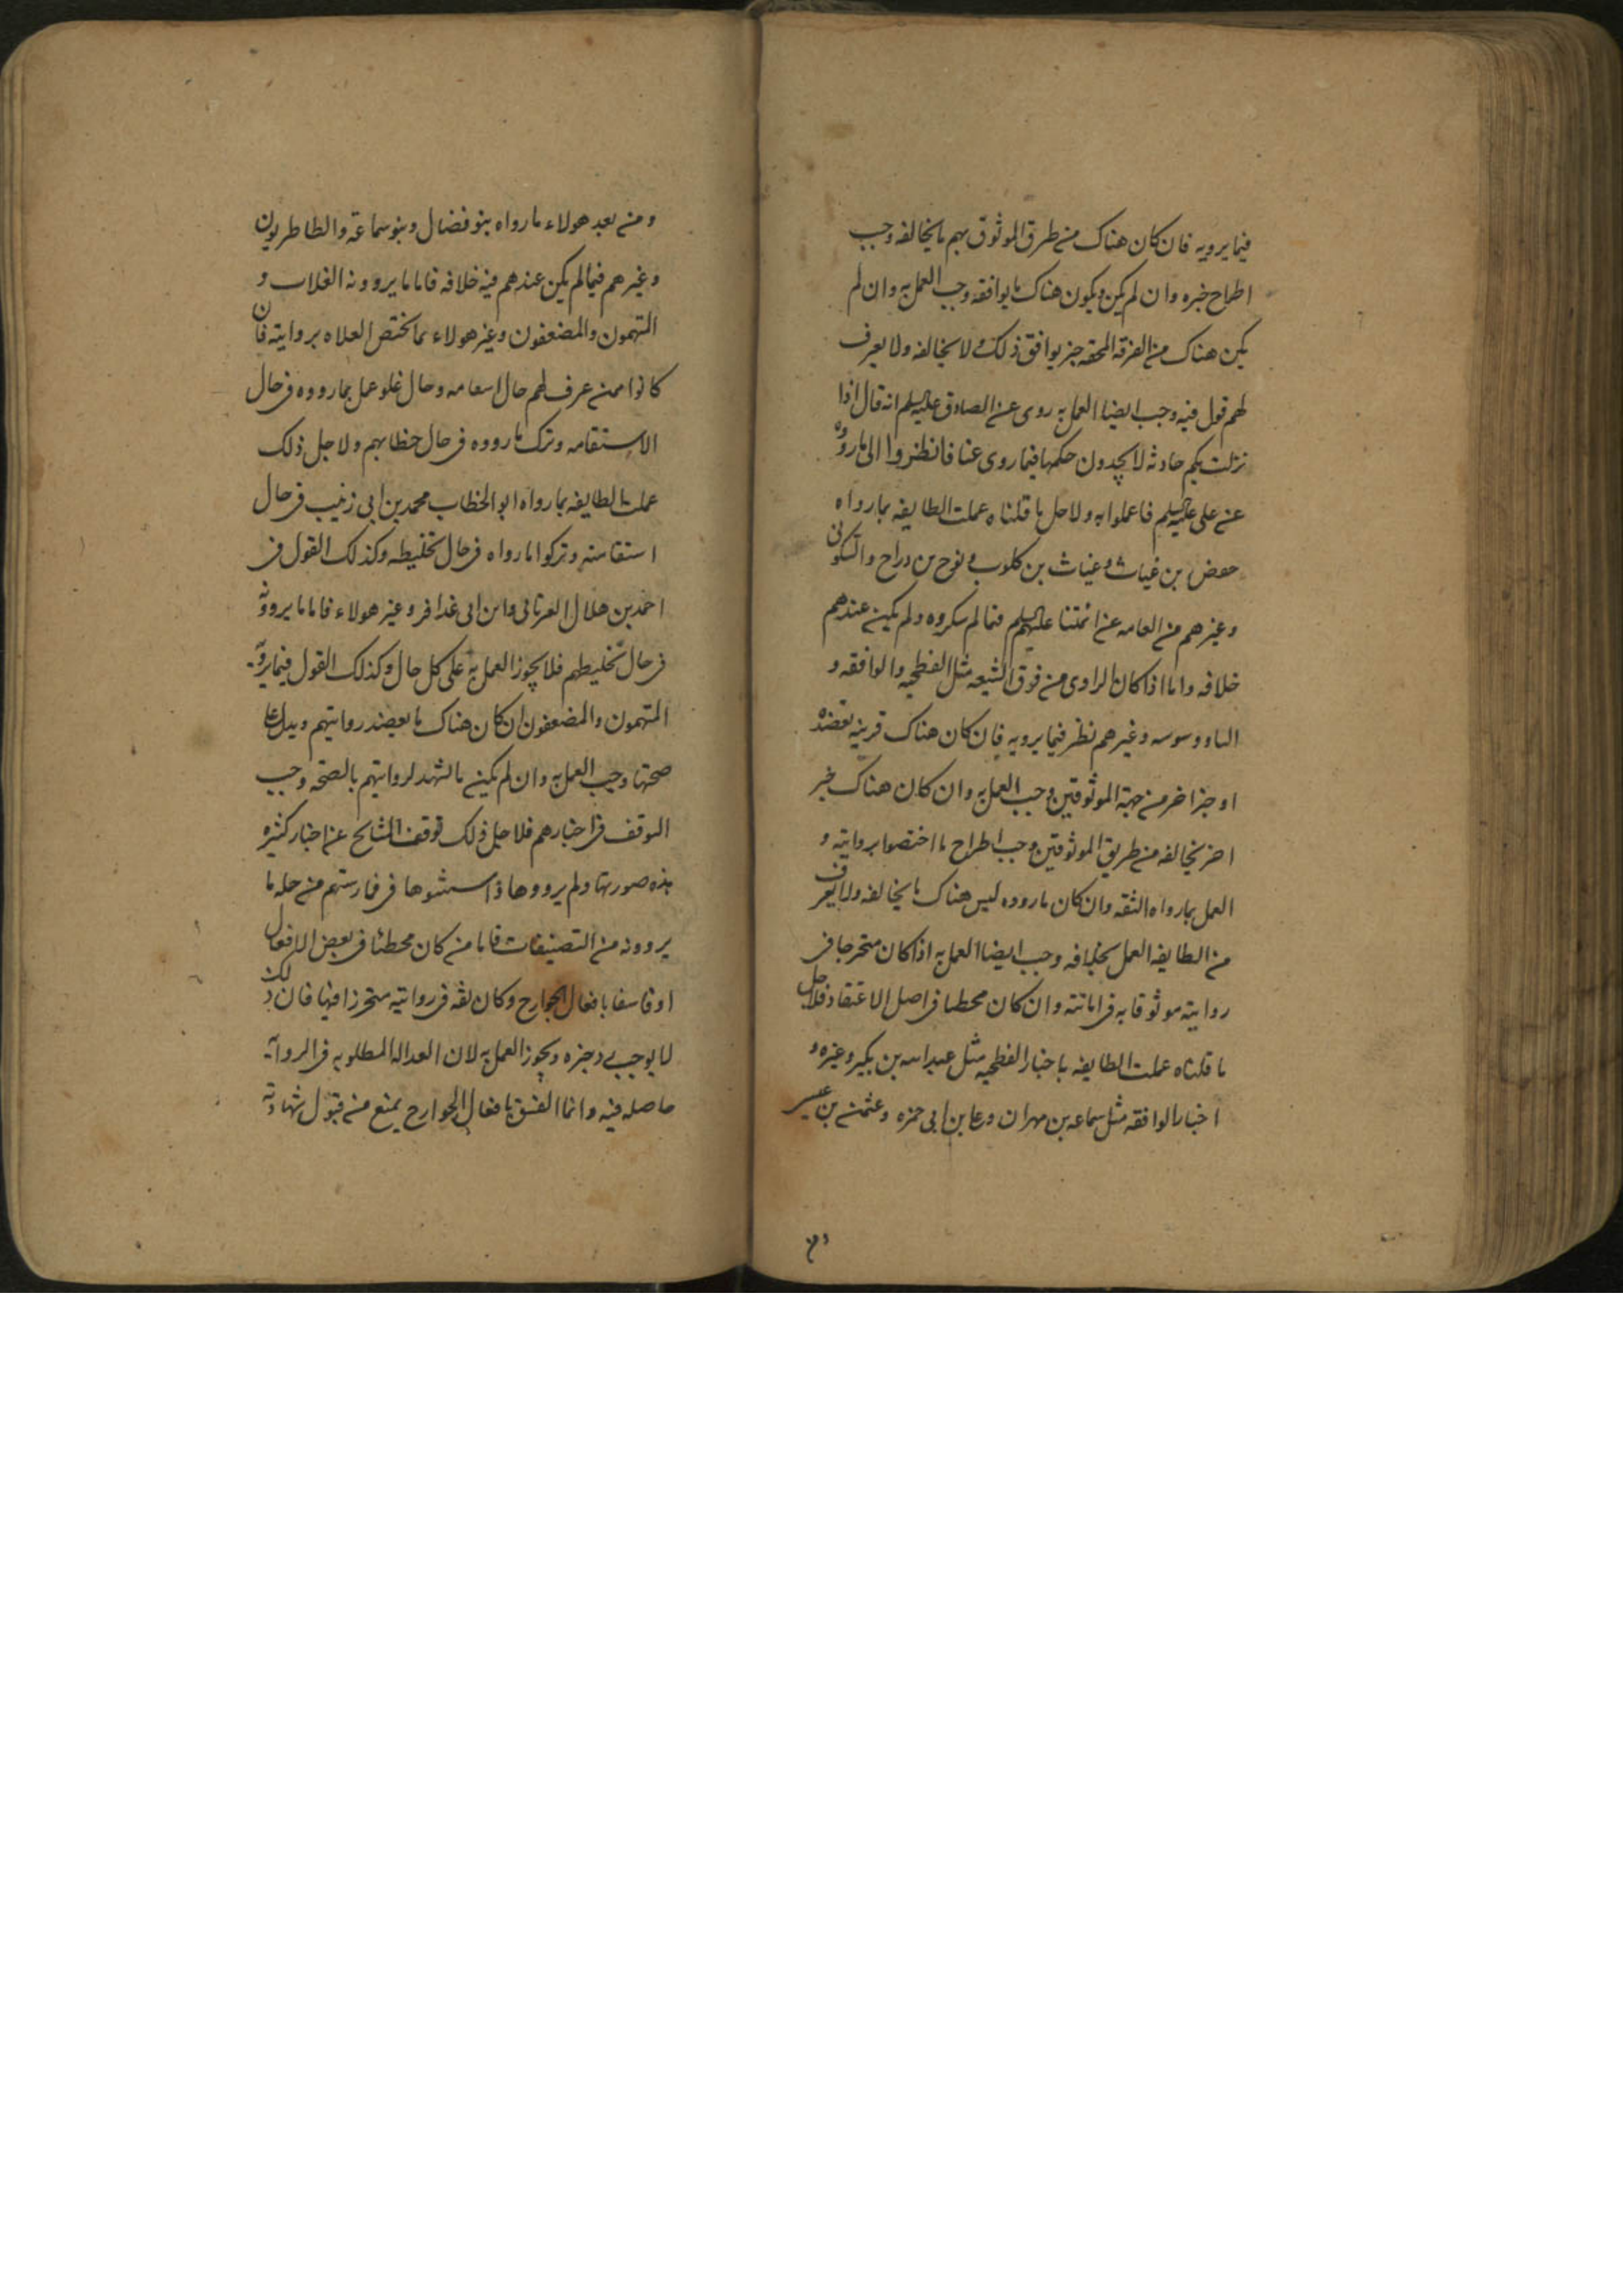 فيما يرويه فان كان هناك من طرق الموثوق بهم ما يخالفه وجب
اطراح خبره وان لم يكن ويكون هناك ما يوافقه وجب العمل به وان لم
يكن هناك من الفرقه المحقه خبر يوافق ذلك ولا يخالفه ولا يعرف
لهم قول فيه وجب ايضا العمل به روى عن الصادق عليه السلم انه قال اذا
نزلت بكم حادثه لا تجدون حكمها فيما روى عنا فانظروا الى ما رووه
عن على عليه السلم فاعملوا به ولاجل ما قلناه عملت الطايفه بما رواه
حفص بن غياث وغياث بن كلوب ونوح بن دراج والسكونى
وغيرهم من العامه عن ائمتنا عليهم السلم فيما لم ينكروه ولم يكن عندهم
خلافه واما اذا كان الراوى من فرق الشيعه مثل الفطحيه والواقفه و
الناووسيه وغيرهم نظر فيما يرويه فان كان هناك قرينه تعضده
او خبر اخر من جهة الموثوقين وجب العمل به وان كان هناك خبر
اخر يخالفه من طريق الموثوقين وجب اطراح ما اختصوا بروايته و
العمل بما رواه الثقه وان كان ما رووه ليس هناك ما يخالفه ولا يعرف
من الطايفه العمل بخلافه وجب ايضا العمل به اذا كان متحرجا فى
روايته موثوقا به فى امانته وان كان مخطيا فى اصل الاعتقاد فلاجل
ما قلناه عملت الطايفه باخبار الفطحيه مثل عبد الله بن بكير وغيره و
اخبار الواقفه مثل سماعه بن مهران وعلى بن ابى حمزه وعثمن بن عيسى
ومن بعد هولاء ما رواه بنو فضال وبنو سماعة والطاطريون
وغيرهم فيما لم يكن عندهم فيه خلافه فاما ما يروونه الغلات و
المتهمون والمضعفون وغير هولاء مما يختص الغلاه بروايته فان
كانوا ممن عرف لهم حال استقامه وحال غلو عمل بما رووه فى حال
الاستقامه وترك ما رووه فى حال خطابهم ولاجل ذلك
عملت الطايفه بما رواه ابو الخطاب محمد بن ابى زينب فى حال
استقامته وتركوا ما رواه فى حال تخليطه وكذلك القول فى
احمد بن هلال العبرتائى وابن ابى عذافر وغير هولاء فاما ما يروونه
فى حال تخليطهم فلا يجوز العمل به على كل حال وكذلك القول فيما يرويه
المتهمون والمضعفون ان كان هناك ما يعضد روايتهم ويدل على
صحتها وجب العمل به وان لم يكن ما لشهد لروايتهم بالصحه وجب
التوقف فى اخبارهم فلاجل ذلك توقف المشايخ عن اخبار كثيره
هذه صورتها ولم يرووها واستثنوها فى فهارستهم من جمله ما
يروونه من التصنيفات فاما من كان مخطئا فى بعض الافعال
او فاسقا بافعال الجوارح وكان ثقه فى روايته متحرزا فيها فان ذلك
لا يوجب رد خبره ويجوز العمل به لان العداله المطلوبه فى الروايه
حاصله فيه وانما الفسق بافعال الجوارح يمنع من قبول شهادته